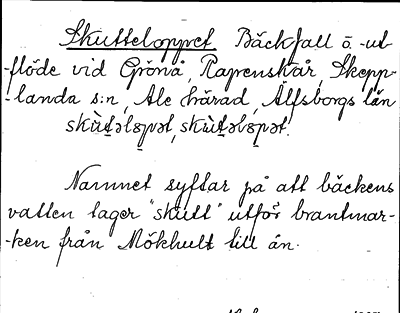 Skutteloppet Bäckfall o. -ut-
-flöde vid Grönå, Raprenskår, Skepp-
-landa s:n, Ale härad, Älfsborgs län
skùt̬əlɷpət, skùt̬əlɷpət.
Namnet syftar på att bäckens
vatten tager "skutt" utför brantmar-
-ken från Mökhult till ån.